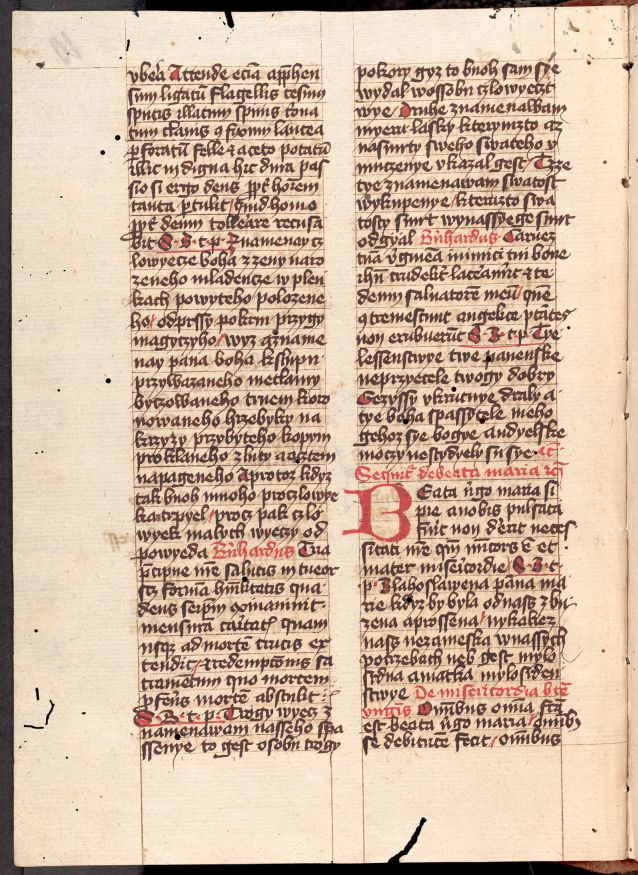 vbera Attende eciam apphen
sum ligatum flagellis cesum
sputis illitum spinis corona
tum clauis q fixum lancea
pforatum felle & aceto potatum
illic indigna hic dura pas
sio si ergo deus ppt hoiem
tanta ptulit quid homo
ppt deum tollerare recusa
bit S. B. t. p. Znamenay cz
lowyecze boha z zeny naro
zeneho mladencze w plen
kach powyteho polozene
ho odprssy pokrm przygy
magyczyho wyz azname
nay pana boha kslupu
przywazaneho metlamy
byczowaneho trnem koro
nowaneho hrzebyky na
krzyz y przybyteho kopym
proklaneho zluty a ocztem
napageneho Aprotoz kdyz
tak buoh mnoho proczlowye
ka trpyel procz pak czlo
wyek malych wyeczy od
powyeda Bernhardus Tria
precipue in mee salutis intueor
formam humilitatis qua
deus seipm exinaniuit
mensuram caritatis quam
usqz ad mortem crucis ex
tendit redempcionis sa
cramentum quo mortem
pferens mortem abstulit
S. B. t. p. Trogy wyecz z
namenawam nasseho spa
ssenye to gest osobu trogy
pokory gyz to buoh sam sye
wydal wosobu czlowyeczt
wye Druhe znamenawam
myeru lasky kterymzto az
nasmrty sweho swateho v
muczenye vkazal gest Trze
tye znamenawam swatost
wykupenye kterizto swa
tosty smrt wynassyege smrt
odgyal Bernhardus Caruez
tua inimici tui bone
ihu crudeliter lacerauit & te
deum saluatorem meum quem
qtremescunt angelice ptates
non erubuerunt S. B. t. p. Tye
lessenstwye twe panenske
neprzyetele twogy dobry
Gezyssy vkrutnye draly a
tye boha spassytele meho
gehoz sye bogye andyelske
moczy nestydyely su sye
Sequitur de beata maria
Beata virgo maria si
pie a nobis pulsata
fuerit non deerit neces
sitati mee qm misericors est et
mater misericordie S. B. t.
p. Blahoslawena panna ma
rie kdyz by byla od nass zbu
zena aprossena nykakez
nass nezameska wnassych
potrzebach neb gest mylo
srdna amatka mylosrden
stwye De misericordia bte
virginis Omnibus omnia fca
est beata virgo maria omnibus
se debitricem fecit omnibus